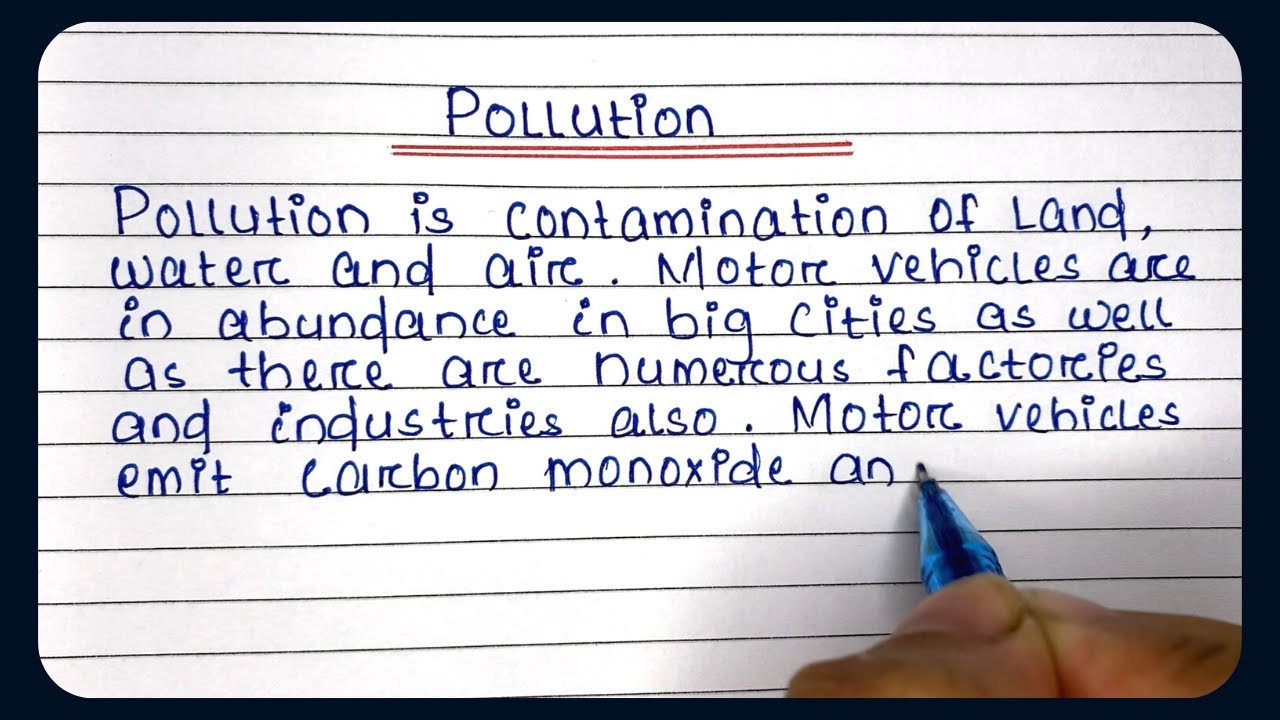 Pollution
Pollution is contamination of Land,
water and air. Motor vehicles are
in abundance in big cities as well
as there are numerous factories
and industries also. Motor vehicles
emit carbon monoxide an